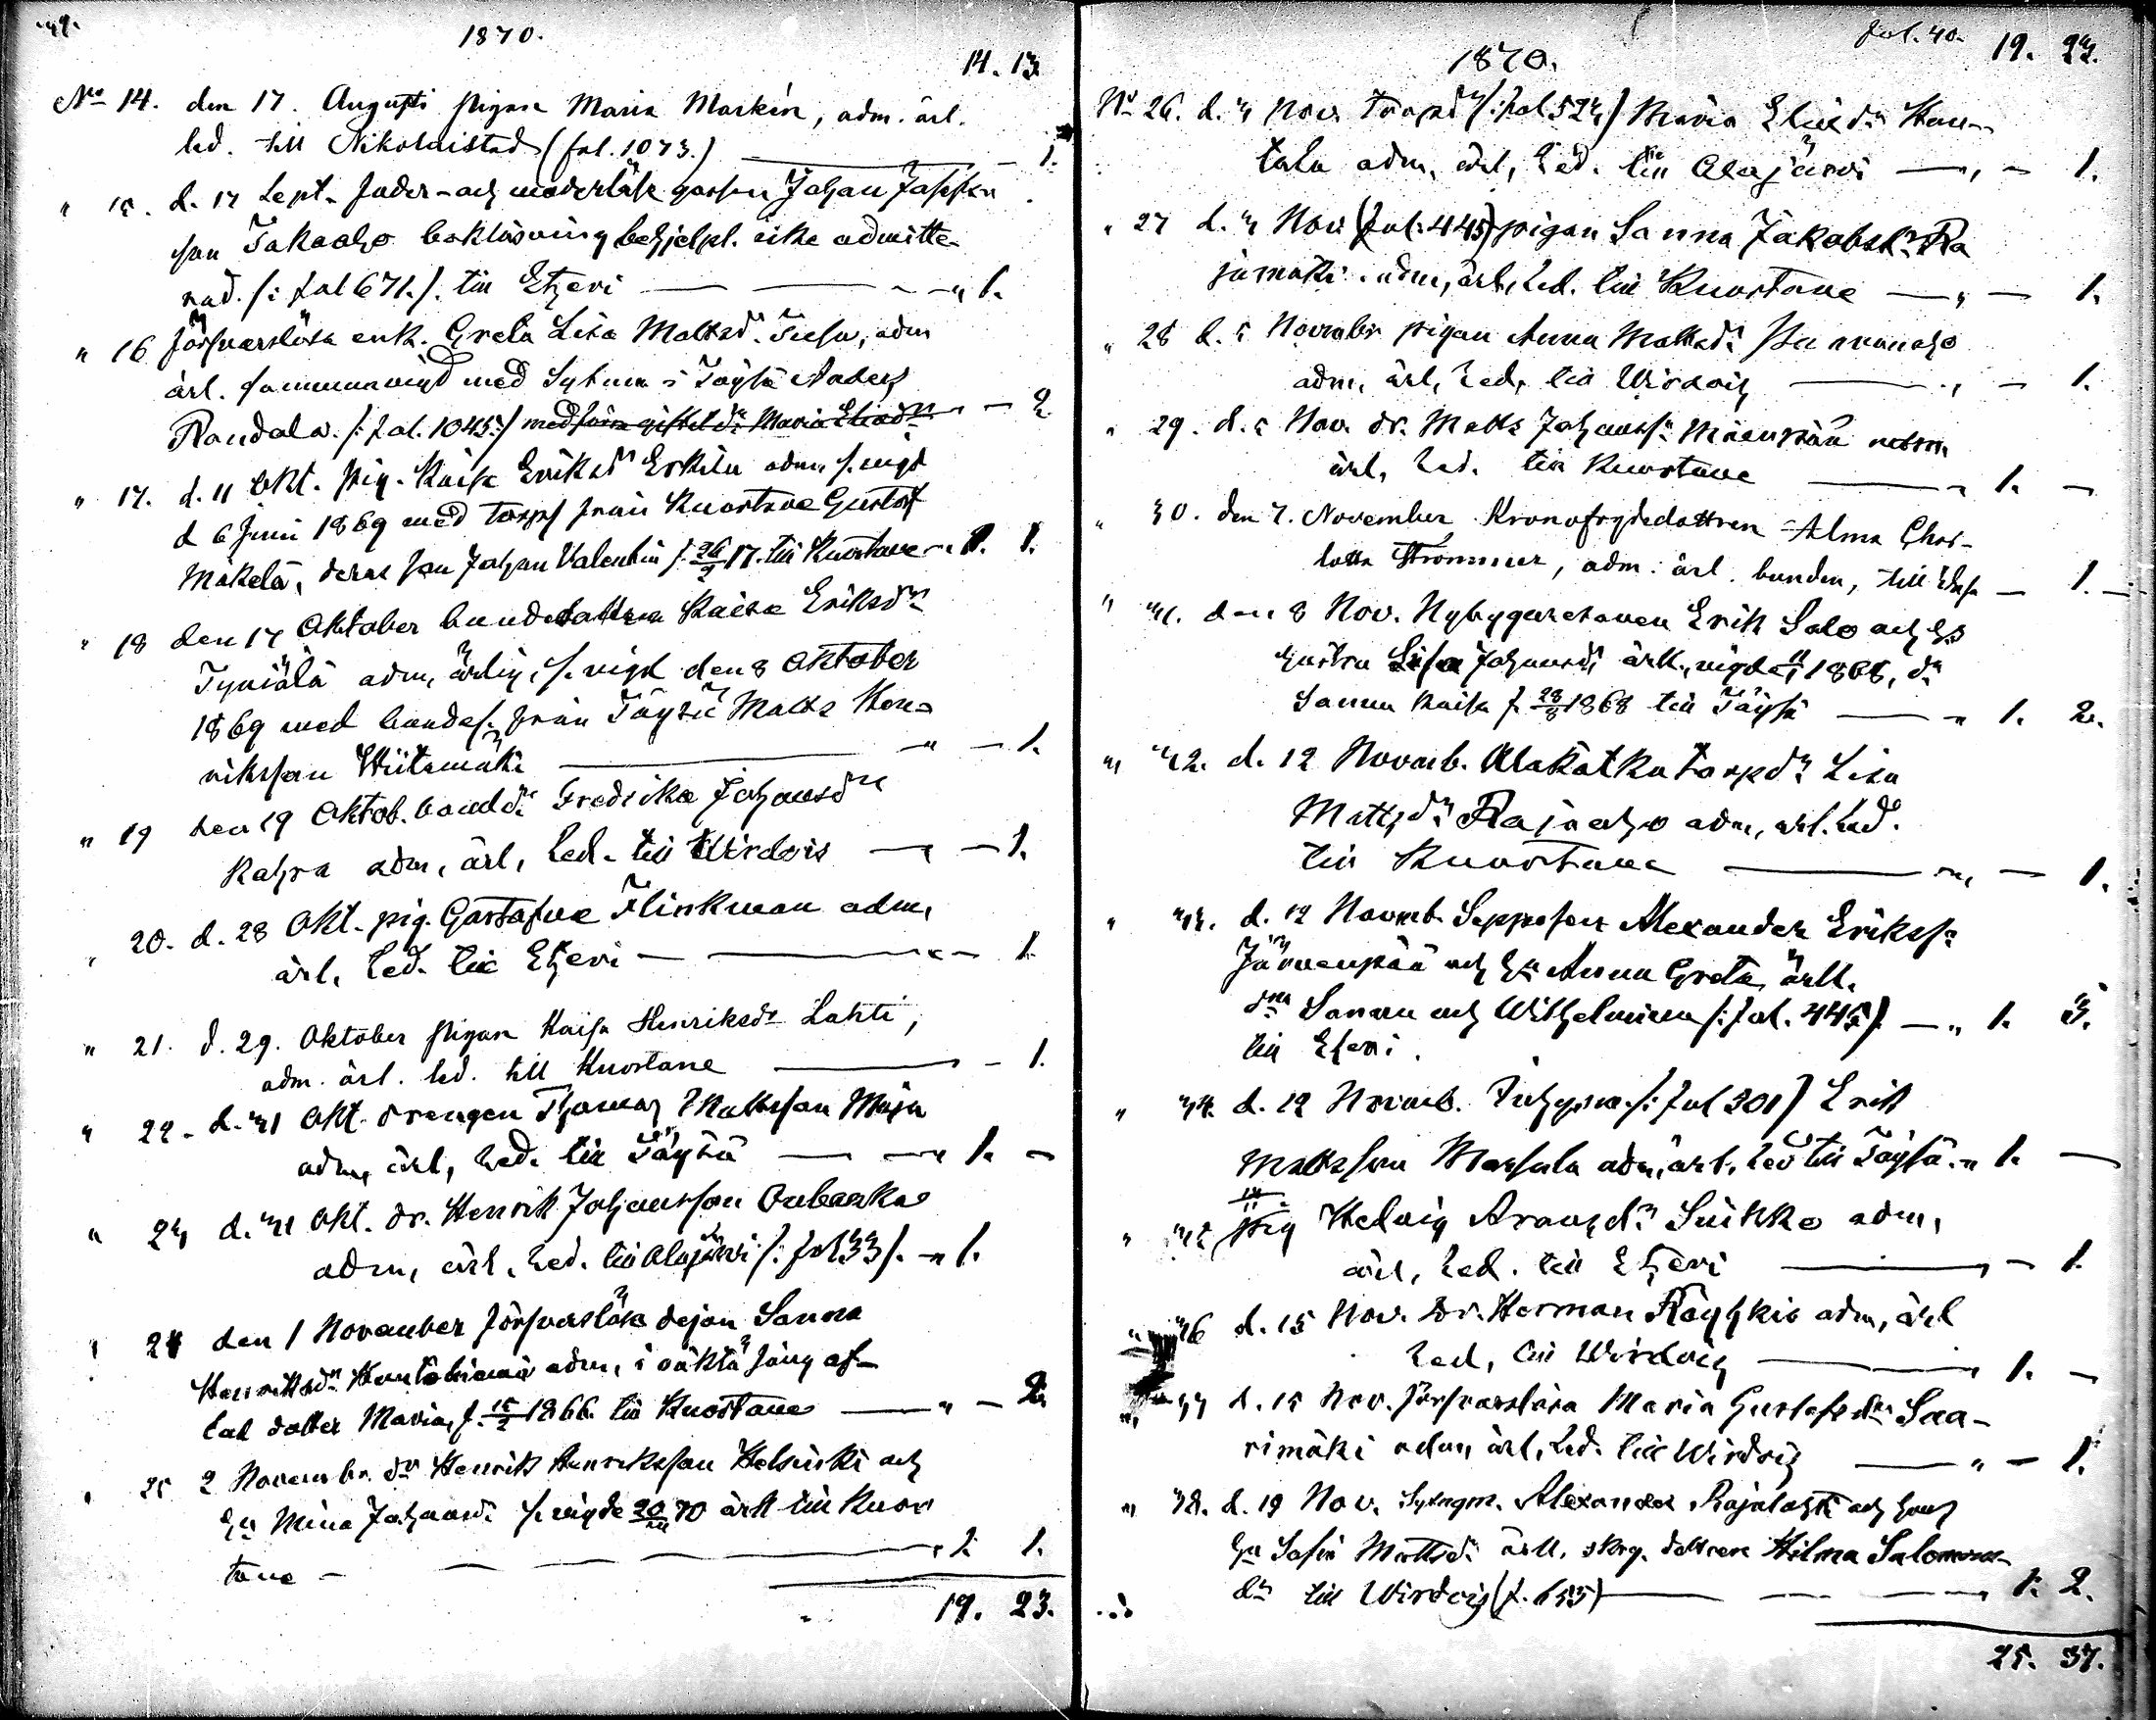 1870.
14. 13
No 14. den 17. Augusti pigan Maria Markén, adm. ärl.
led. till Nikolaistad (fol. 1073.) — 1.
" 15. d. 17 Sept. fader- och moderlöse gossen Johan Josefs
son Takaaho boklösning behjelpl. icke admitte-
rad. /: fol 671./. till Etseri — " 1.
" 16 försvarslösa enk. Greta Lisa Mattsdr. adm
ärl. sammanvigd med Sytn. i Töysä Anders
Randala. /: fol. 1045:/ — 2
" 17. d. 11 Okt. pig. Kaisa Eriksdr Erkila adm. s. vigd
d 6 Juni 1869 med torps från Kuortane Gustaf
Mäkelä, deras son Johan Valentin f. 26/2 17. till Kuortane — 1. 1.
" 18 den 17 Oktober bondedottren Kaisa Eriksdr
Tyniälä adm, ärlig, s. vigd den 8 Oktober
1869 med bondes. från Töysä Matts Hen-
riksson Wiitamäki — " — 1.
" 19 den 19 Oktob. bonddr Fredrika Johansdr
Kahra adm, ärl, led. till Wirdois — 1.
" 20. d. 28 Okt. pig. Gustafva Flinkman adm,
ärl, led. till Etseri — 1.
" 21. d. 29. Oktober pigan Kaisa Henriksdr Lahti,
adm. ärl. led. till Kuortane — 1.
" 22. d. 31 Okt. drengen Thomas Mattsson Maja
adm, ärl, led. till Töysä — 1. —
" 23 d. 31 Okt. dr. Henrik Johansson
adm, ärl. led. till Alajärvi /: fol 33/. — 1.
" 24 den 1 November försvarslösa dejan Sanna
Henriksdr adm, i oäkta säng af-
lad dotter Maria, f. 15/2 1866. till Kuortane — " — 2.
" 25 2 Novembr. dr Henrik Henriksson Helsinki och
Hu Mina Johansdr s. vigde 20/3 70 ärl till Kuor
tane — 1. 1.
19. 23.
fol. 40.
19. 23.
1870.
No 26. d. 3 Nov. torpdr /: fol 523/ Maria Eliaedr Hau-
tala adm, ärl, led. till Alajärvi — " — 1.
" 27 d. 3 Nov (fol: 445) pigan Sanna Jakobsdr Ra
jamäki adm, ärl, led. till Kuortane — " — 1.
" 28 d. 5 Novembr pigan Anna Mattsdr
adm, ärl, led, till Wirdois — " — 1.
" 29. d. 5 Nov. dr. Matts Johanss. Mäenpää adm,
ärl, led. till Kuortane — " 1. —
" 30. den 7. November Kronofogdedottren Alma Char-
lotta Strömmer, adm. ärl. bunden, till — 1. —
" 31. den 8 Nov. Nybyggaresonen Erik Salo och hs
hustru Lisa Johansdr ärl., vigde 1868, dr
Sanna Kaisa f. 28/8 1868 till Töysä — " 1. 2.
" 32. d. 12 Novemb. Alakätkä torpdr Lisa
Mattsdr Rajaaho adm, ärl. led.
till Kuortane — " — 1.
" 33. d. 12 Novemb. Sepposon Alexander Erikss.
Järvenpää och Hu Anna Greta, ärl.
drr Sanna och Wilhelmina /: fol. 445/. — " 1. 3.
till Etseri.
" 34. d. 12 Novemb. Inhysm. /: fol 301/ Erik
Mattsson Marsala adm, ärl, led till Töysä. " 1. —
" 35 pig Hedvig Aronsdr Suikko adm,
ärl, led. till Etseri — 1.
" 36 d. 15 Nov. dr. Herman Räyhkis adm, ärl
led, till Wirdois — " 1. —
" 37 d. 15 Nov. försvarslösa Maria Gustafsdr Saa-
rimäki adm, ärl, led. till Wirdois — " — 1.
" 38. d. 19 Nov. Sytngm. Alexander Rajalahti och hans
Hu Sofia Mattsdr ärl. dottren Hilma Salomons-
dr till Wirdois (f. 655) — 1. 2.
25. 37.